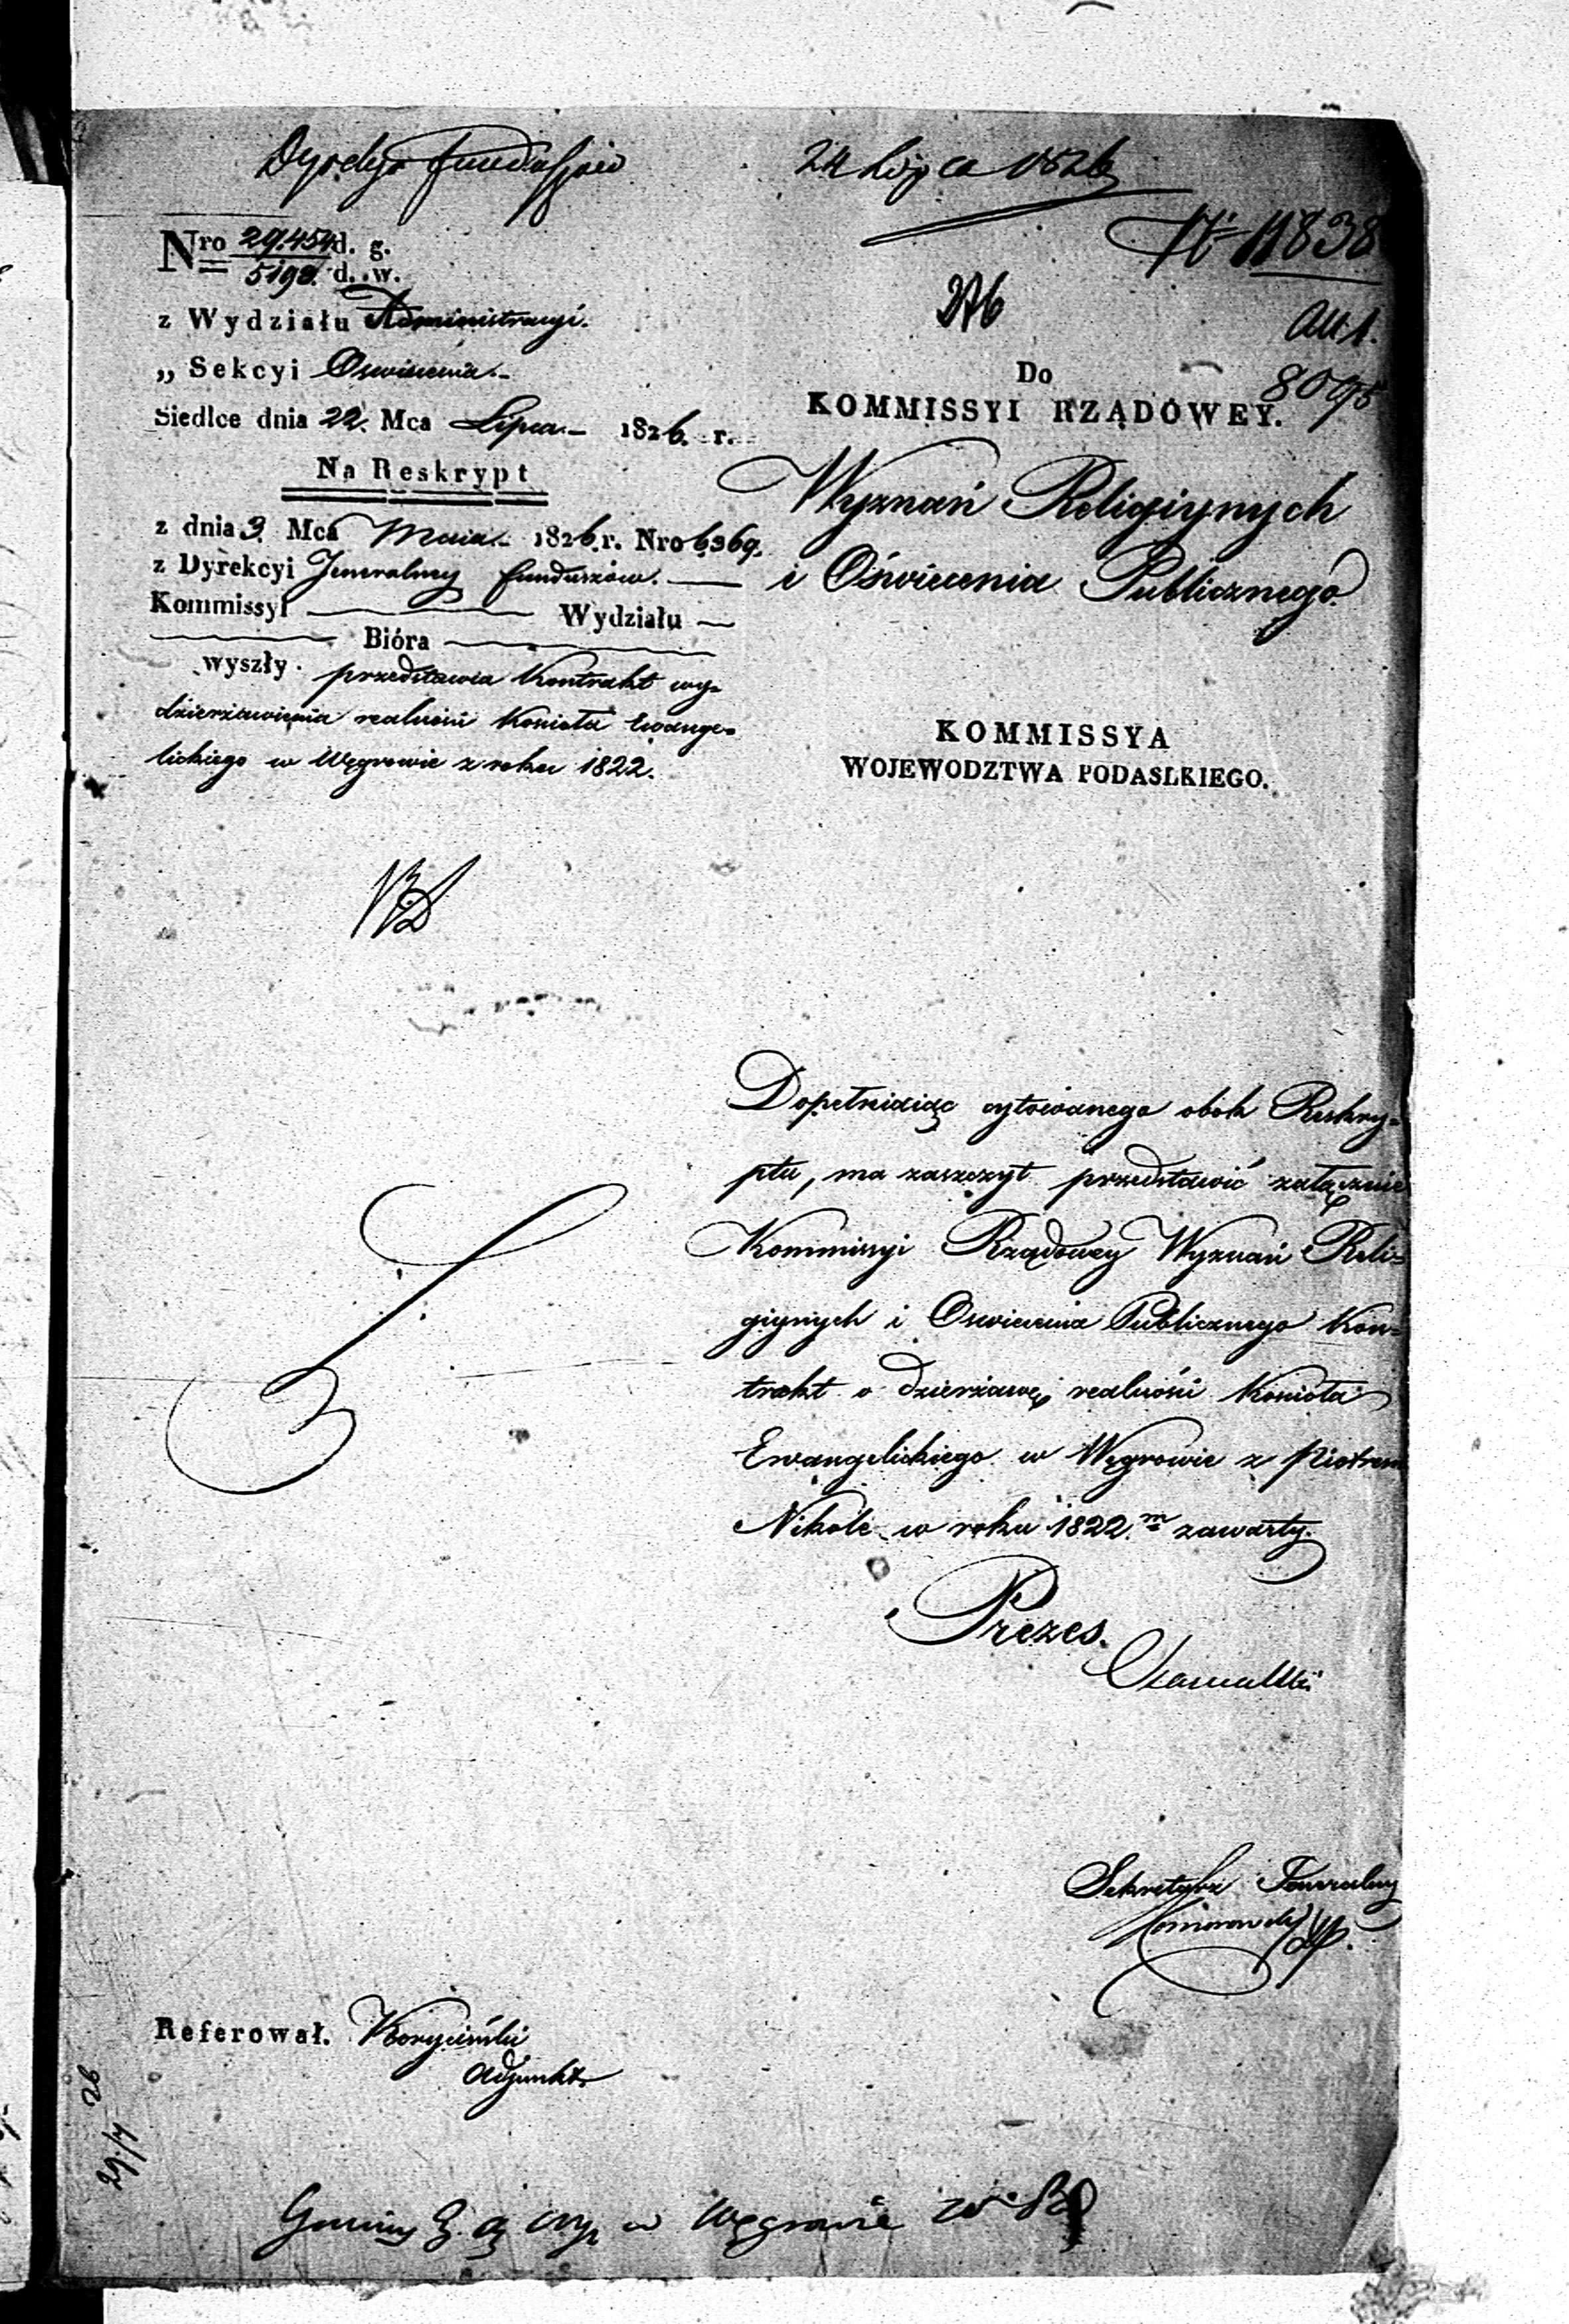 24 Lipca 1826
Nro 29.454 d. g.
5190. d. w.
z Wydziału Administracyi.
„ Sekcyi Oswiecenia.
Siedlce dnia 22. Mca Lipca 1826. r.
Na Reskrypt
z dnia 3. Mca Maia 1826. r. Nro 6369.
z Dyrekcyi Jeneralney funduszów.
Kommissyi Wydziału
Bióra
wyszły. przedstawia Kontrakt wy-
dzierżawienia realności Kościoła Ewange-
lickiego w Węgrowie z roku 1822.
N 11838
276
All 1.
Do
KOMMISSYI RZĄDOWEY.
Wyznań Religiynych
i Oświecenia Publicznego.
KOMMISSYA
WOJEWODZTWA PODASLKIEGO.
Dopełniaiąc cytowanego obok Reskry-
ptu, ma zaszczyt przedstawić załącznie
Kommissyi Rządowey Wyznań Reli-
giynych i Oswiecenia Publicznego Kon-
trakt o dzierżawę realności Kościoła
Ewangelickiego w Węgrowie z Piotrem
Nikole w roku 1822.m zawarty.
Prezes.
Sekretarz Jeneralny
Referował.
Adjunkt
29/7 26
w Węgrowie